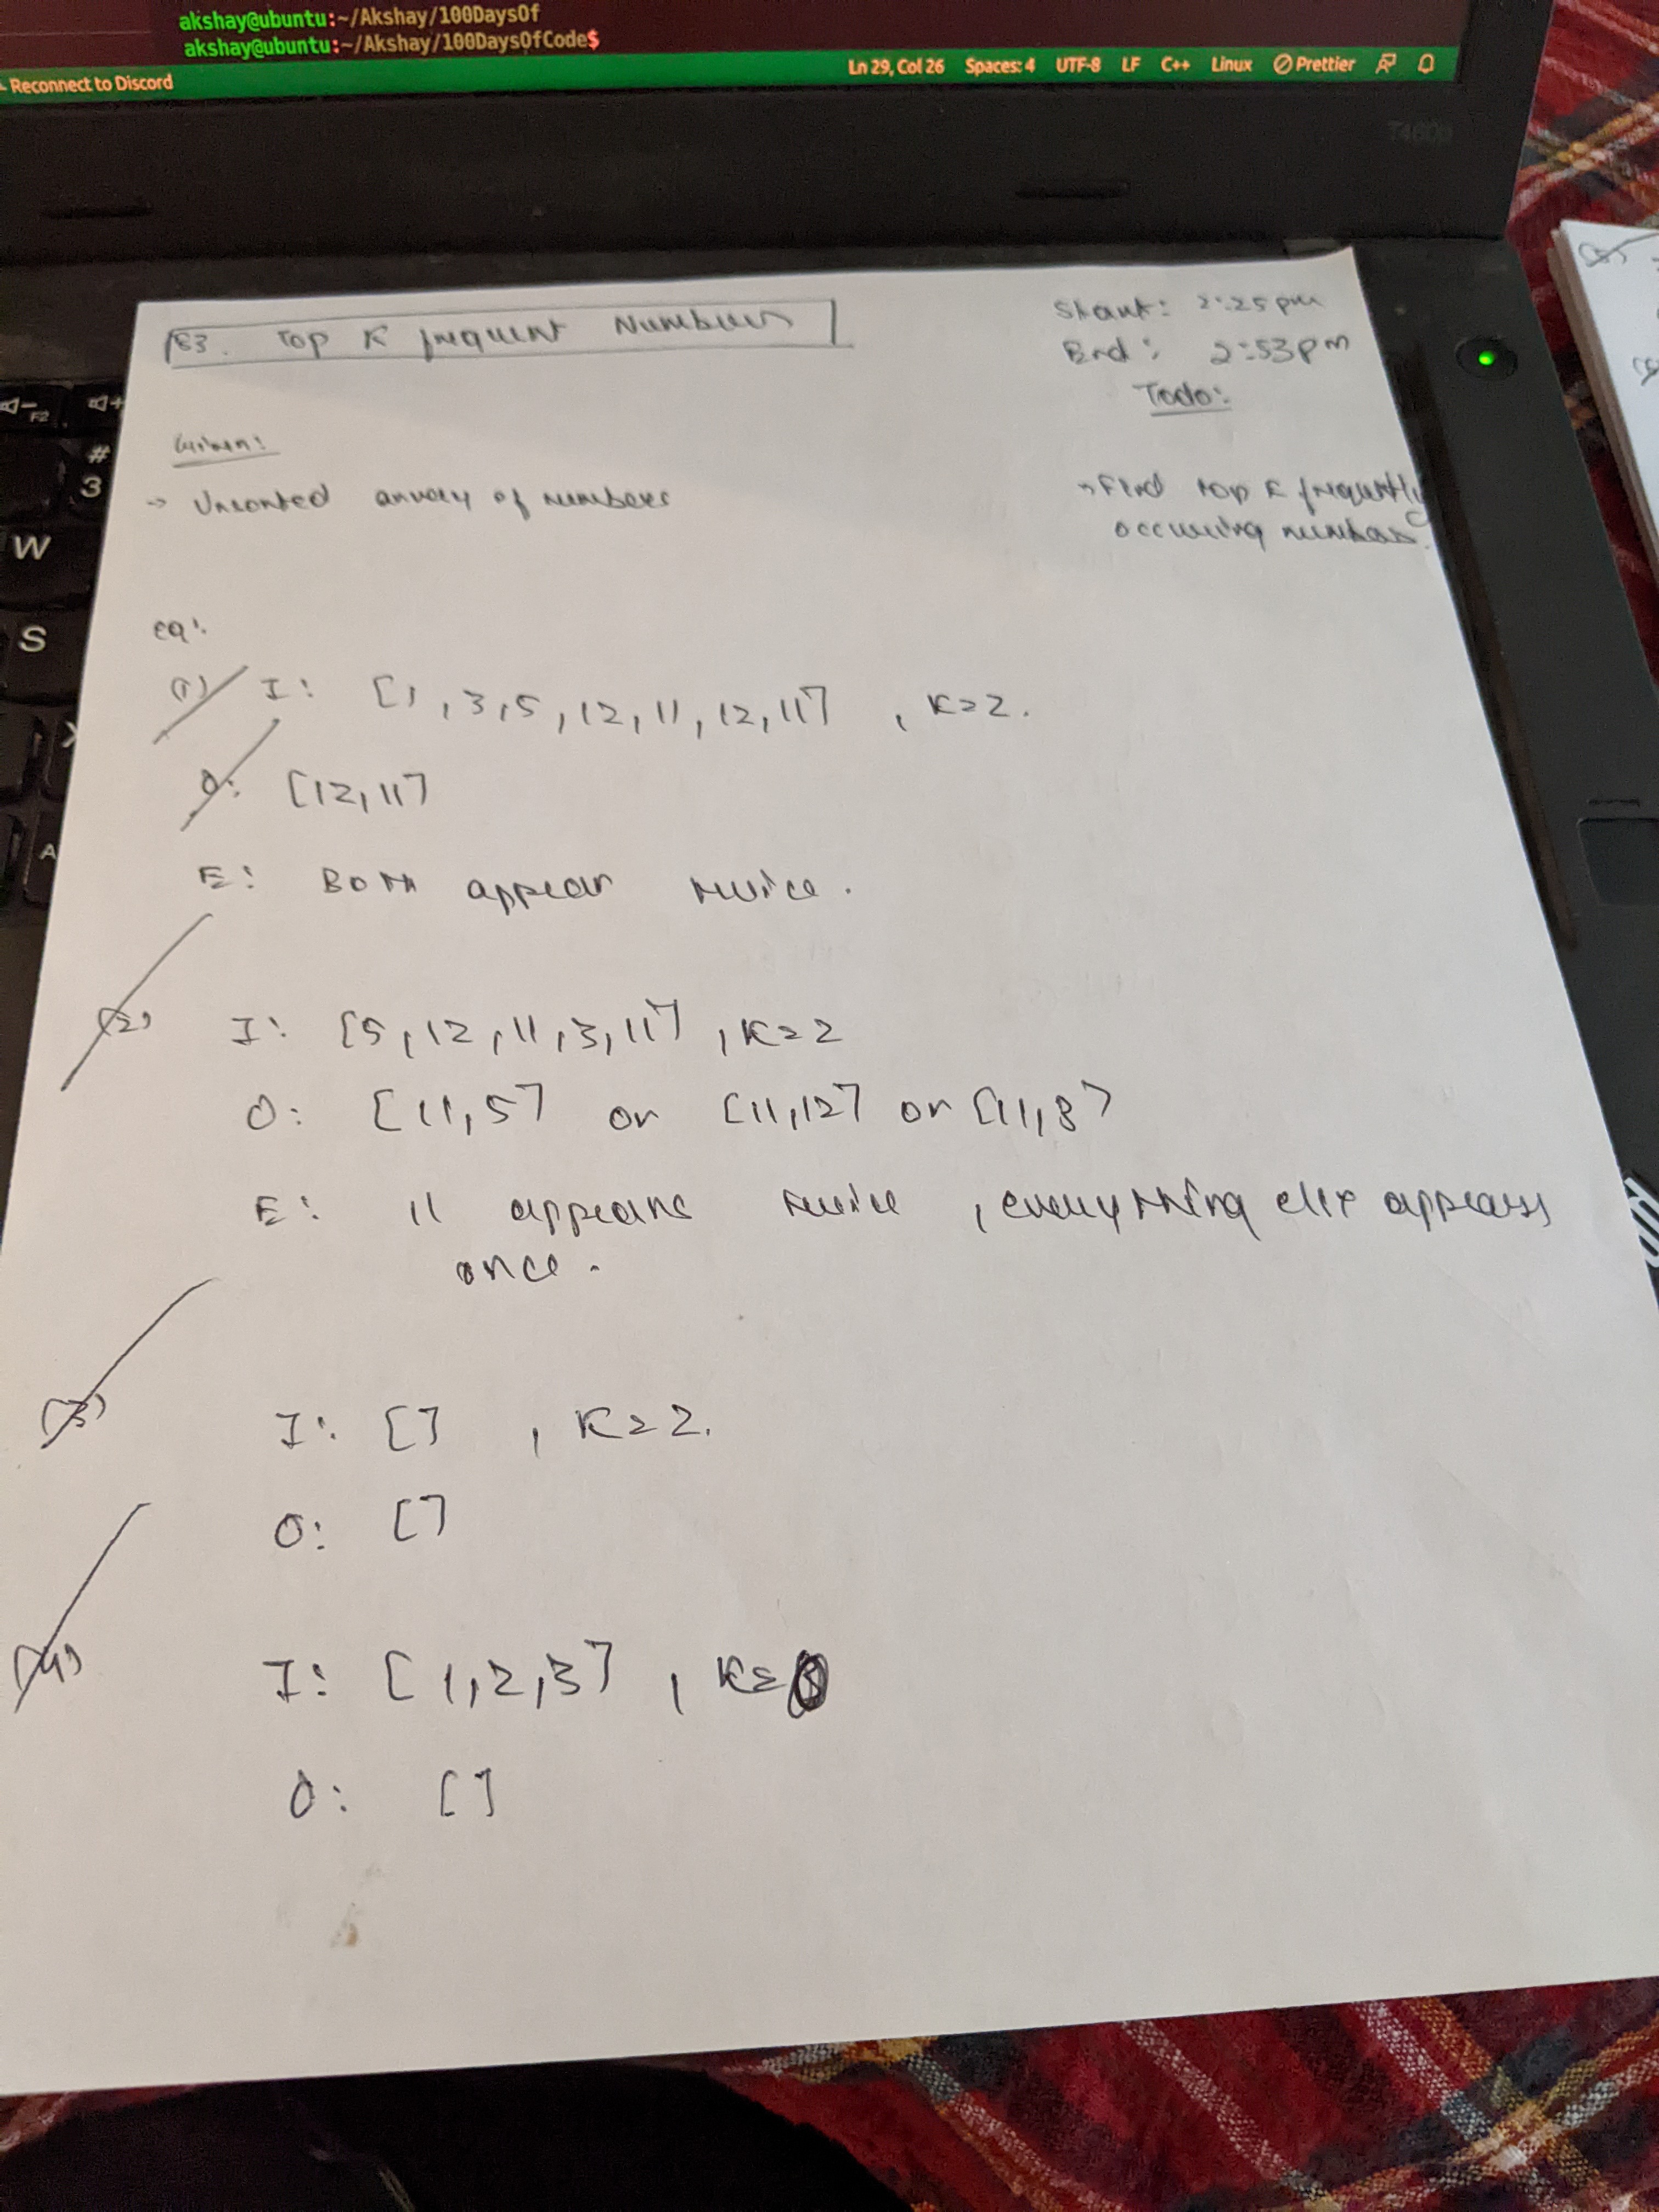 akshay@ubuntu:~/Akshay/100DaysOf
akshay@ubuntu:~/Akshay/100DaysOfCode$
Reconnect to Discord
Ln 29, Col 26 Spaces: 4 UTF-8 LF C++ Linux Prettier
83. Top K frequent Numbers
Start: 2:25pm
End: 2:53pm
Todo:
Given:
→ Unsorted array of numbers
→ Find top K frequently
occuring numbers.
eg:
(1) I: [1,3,5,12,11,12,11], K=2.
O: [12,11]
E: Both appear twice.
(2) I: [5,12,11,3,11], K=2
O: [11,5] or [11,12] or [11,3]
E: 11 appears twice, everything else appears
once.
(3) I: [], K=2.
O: []
(4) I: [1,2,3], K=
O: []
F2
#
3
W
S
A